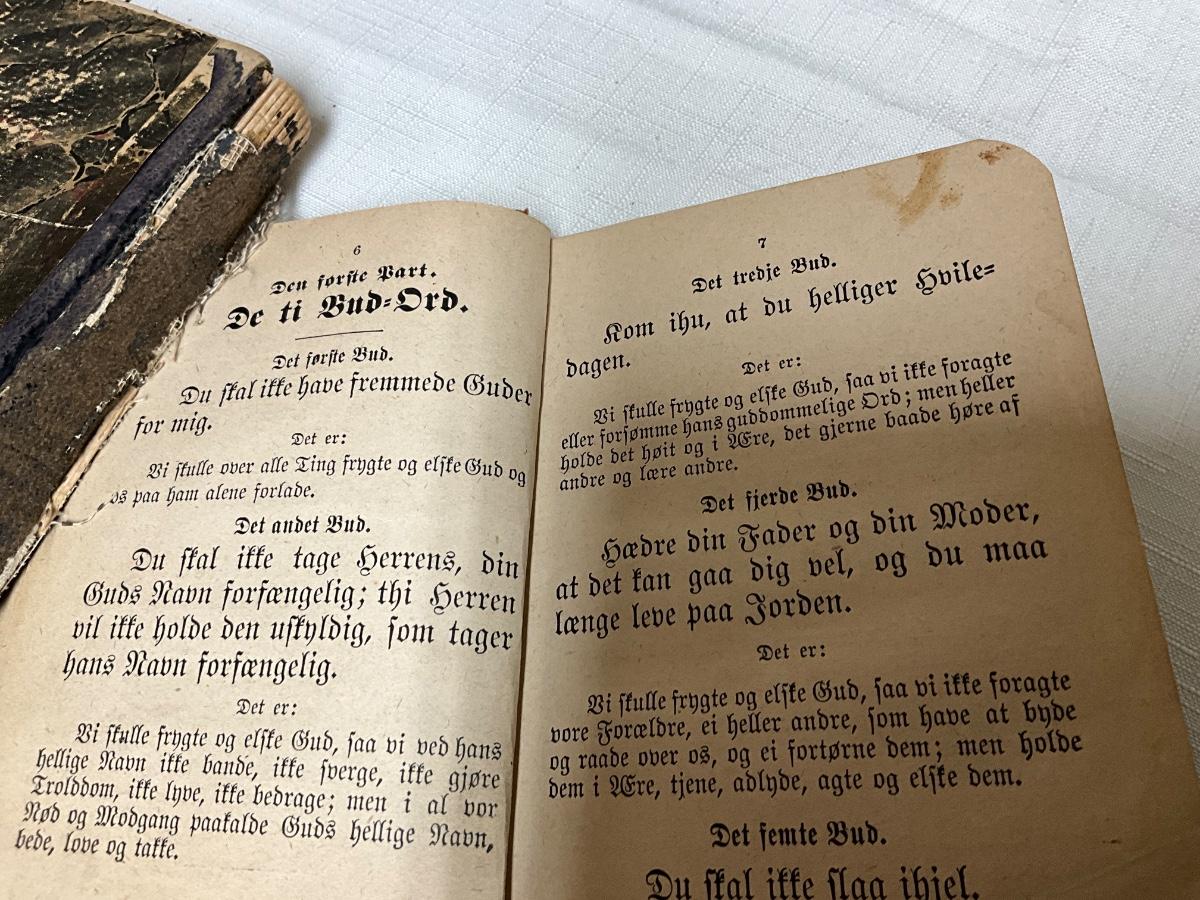 6
Den første Part.
De ti Bud-Ord.
Det første Bud.
Du skal ikke have fremmede Guder
for mig.
Det er:
Vi skulle over alle Ting frygte og elske Gud og
os paa ham alene forlade.
Det andet Bud.
Du skal ikke tage Herrens, din
Guds Navn forfængelig; thi Herren
vil ikke holde den uskyldig, som tager
hans Navn forfængelig.
Det er:
Vi skulle frygte og elske Gud, saa vi ved hans
hellige Navn ikke bande, ikke sverge, ikke gjøre
Trolddom, ikke lyve, ikke bedrage; men i al vor
Nød og Modgang paakalde Guds hellige Navn,
bede, love og takke.
7
Det tredje Bud.
Kom ihu, at du helliger Hvile-
dagen.
Det er:
Vi skulle frygte og elske Gud, saa vi ikke foragte
eller forsømme hans guddommelige Ord; men heller
holde det høit og i Ære, det gjerne baade høre af
andre og lære andre.
Det fjerde Bud.
Hædre din Fader og din Moder,
at det kan gaa dig vel, og du maa
længe leve paa Jorden.
Det er:
Vi skulle frygte og elske Gud, saa vi ikke foragte
vore Forældre, ei heller andre, som have at byde
og raade over os, og ei fortørne dem; men holde
dem i Ære, tjene, adlyde, agte og elske dem.
Det femte Bud.
Du skal ikke slaa ihjel.